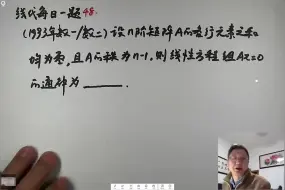 线代每日一题48.
(1993年数一/数二)设n阶矩阵A的各行元素之和
均为零,且A的秩为n-1,则线性方程组Ax=0
的通解为______.